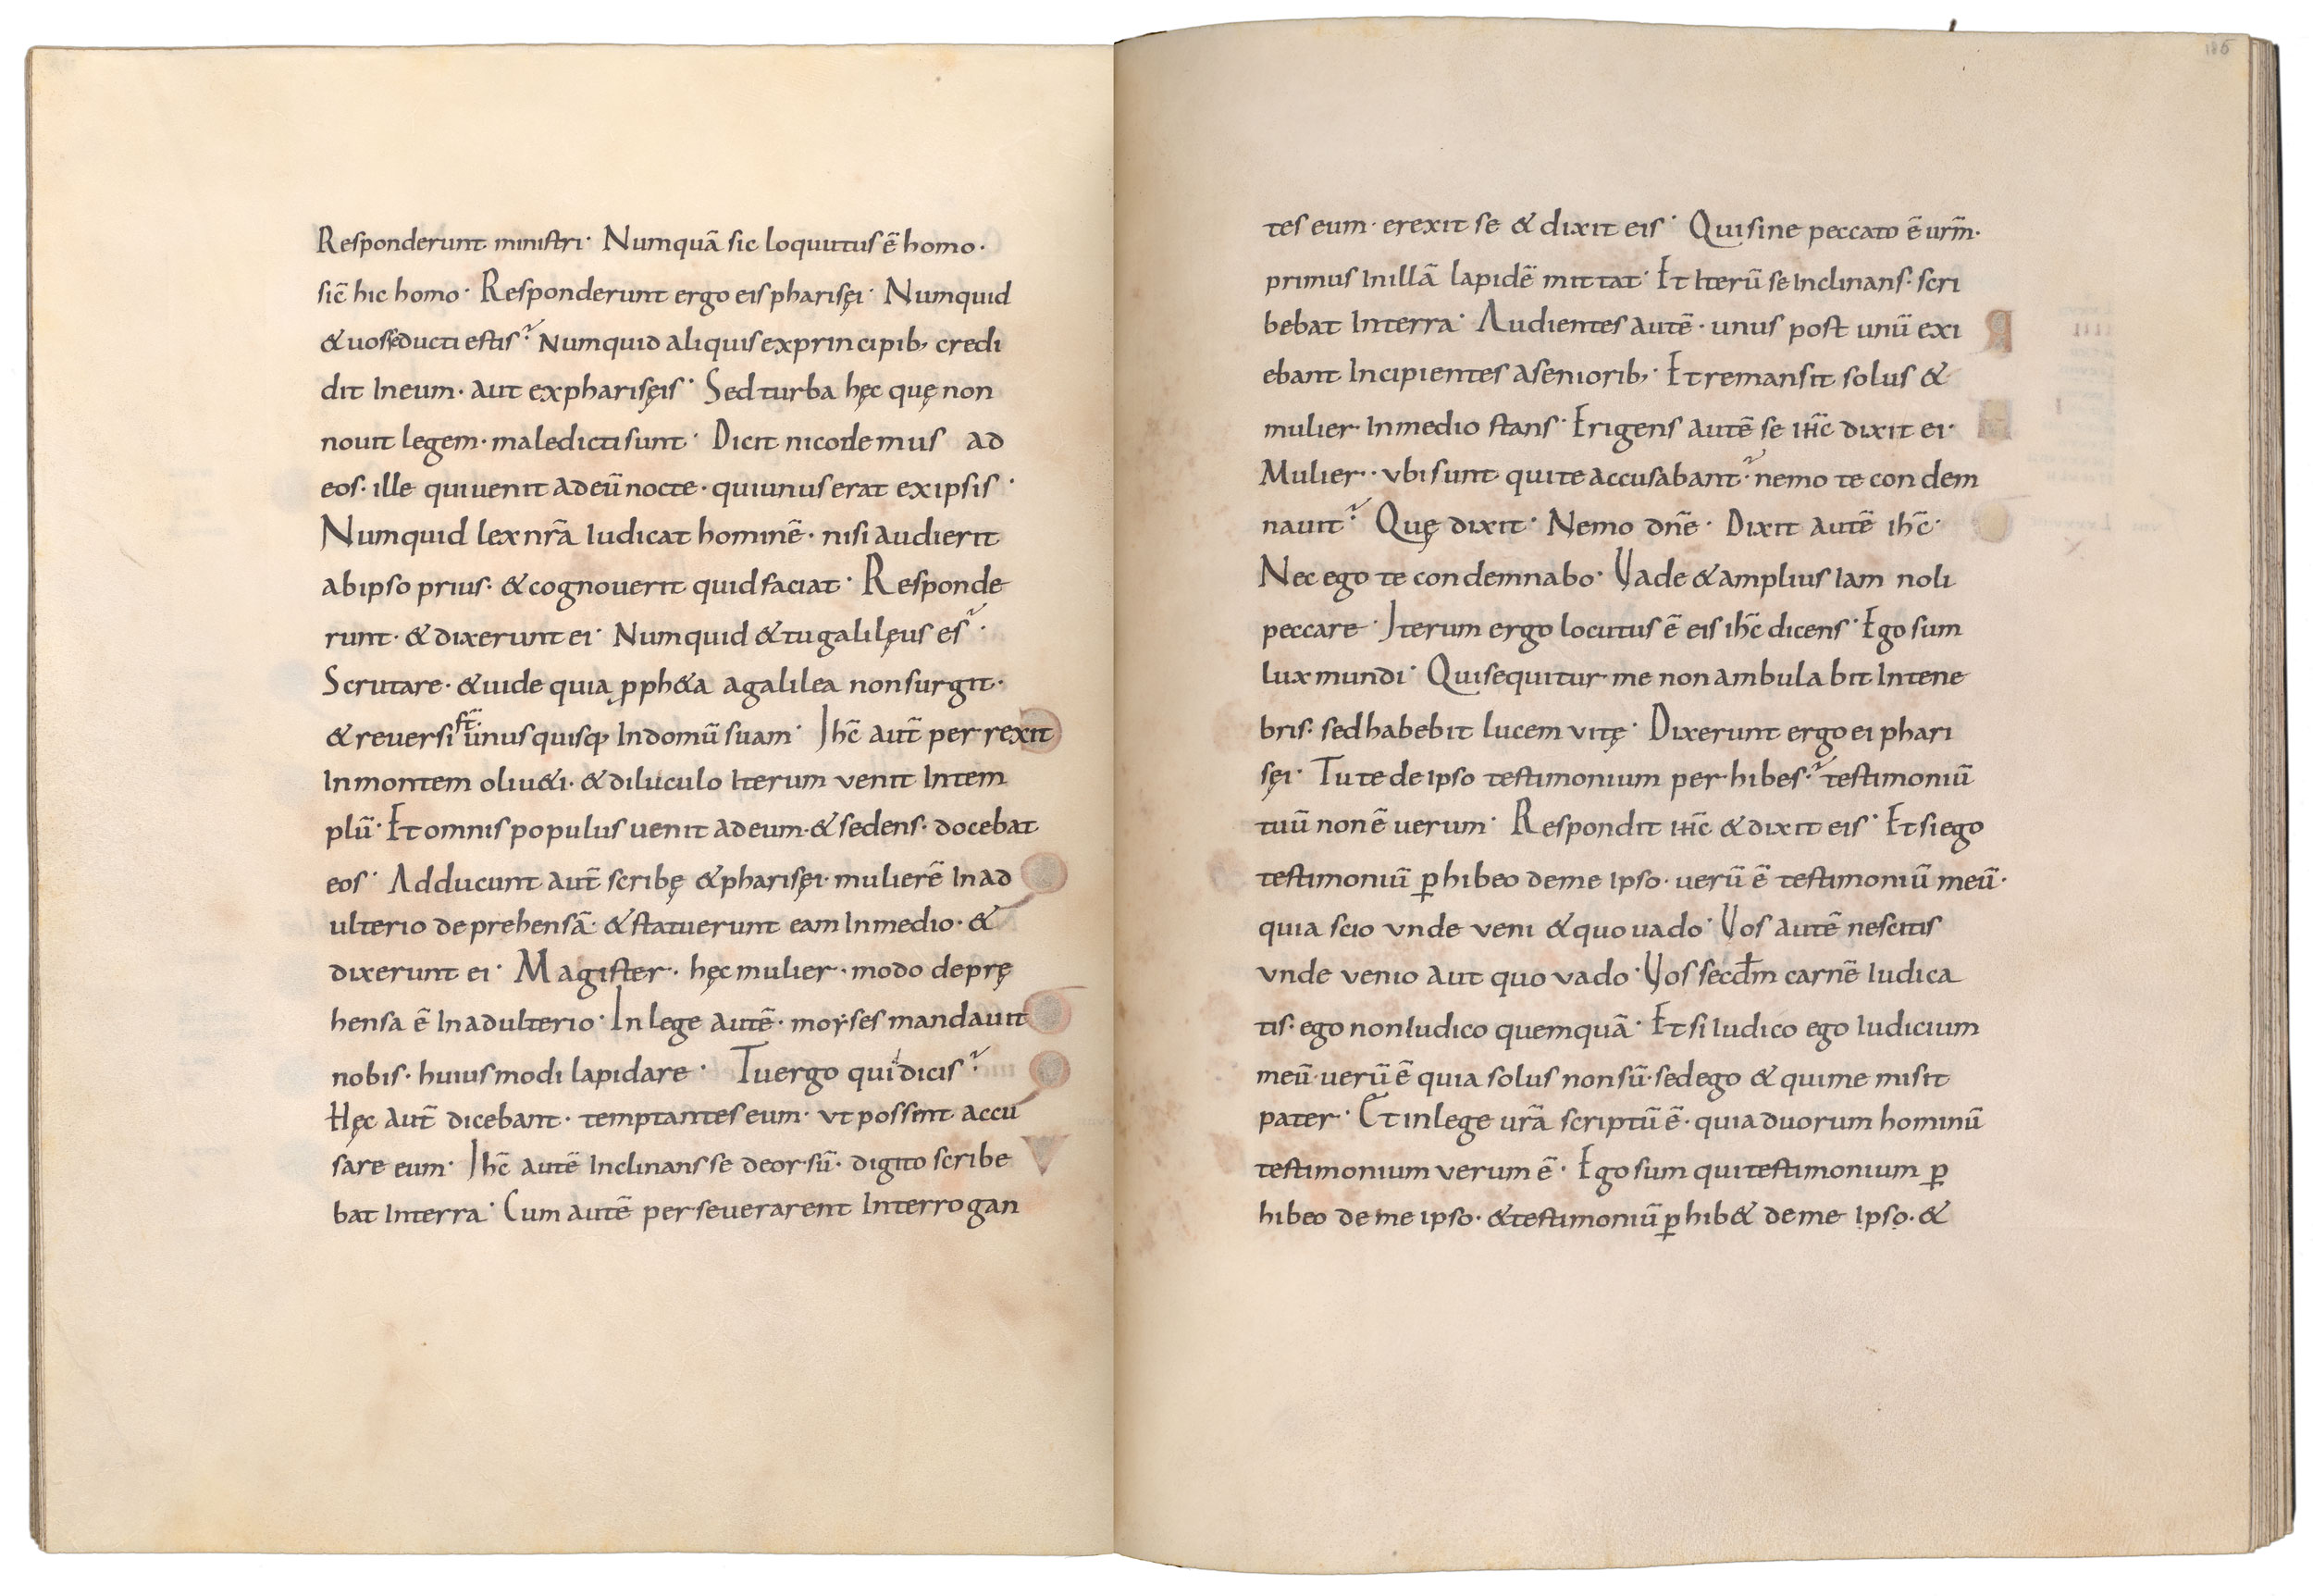 Responderunt ministri· Numquā sic loquutus ē homo·
sic̄ hic homo· Responderunt ergo eis pharisęi· Numquid
& uos seducti estis? Numquid aliquis ex principib; credi
dit In eum· aut ex pharisęis· Sed turba hęc quę non
nouit legem· maledicti sunt· Dicit nicodemus ad
eos· ille qui uenit ad eū nocte· qui unus erat ex ipsis·
Numquid lex nr̄a Iudicat hominē· nisi audierit
ab ipso prius· & cognouerit quid faciat· Responde
runt· & dixerunt ei· Numquid & tu galilęus es?·
Scrutare· & uide quia ꝓph&a a galilea non surgit·
& reuersi st̄· unus quisq; In domū suam· Ihc̄ aut̄ perrexit
In montem oliu&i· & diluculo Iterum venit In tem
plū· Et omnis populus uenit ad eum· & sedens· docebat
eos· Adducunt aut̄ scribę & pharisęi· mulierē In ad
ulterio deprehensā· & statuerunt eam In medio· &
dixerunt ei· Magister· hęc mulier· modo deprę
hensa ē In adulterio· In lege autē· moyses mandauit
nobis· huius modi lapidare· Tu ergo quid dicis?
Hęc aut̄ dicebant· temptantes eum· vt possent accu
sare eum· Ihc̄ autē Inclinans se deorsū· digito scribe
bat In terra· Cum autē perseuerarent Interrogan
186
tes eum· erexit se & dixit eis· Qui sine peccato ē urm̄·
primus In illā lapidē mittat· Et Iterū se Inclinans· scri
bebat In terra· Audientes autē· unus post unū exi
ebant Incipientes aseniorib;· Et remansit solus &
mulier· In medio stans· Erigens autē se ihc̄ dixit ei·
Mulier·· vbi sunt qui te accusabant?· nemo te condem
nauit? Quę dixit· Nemo dn̄e· Dixit autē ihc̄·
Nec ego te condemnabo· Vade & amplius Iam noli
peccare· Iterum ergo locutus ē eis ihc̄ dicens· Ego sum
lux mundi· Qui sequitur me non ambulabit In tene
bris· sed habebit lucem vitę· Dixerunt ergo ei phari
sęi· Tu te de ipso testimonium perhibes·? testimoniū
tuū non ē uerum· Respondit ihc̄ & dixit eis· Et si ego
testimoniū ꝑhibeo de me Ipso· uerū ē testimoniū meū·
quia scio vnde veni & quo uado· Vos autē nescitis
vnde venio aut quo vado· Vos secd̄m carnē Iudica
tis· ego non Iudico quemquā· Et si Iudico ego Iudicium
meū· uerū ē quia solus non sū· sed ego & qui me misit
pater· Et in lege ur̄a scriptū ē· quia duorum hominū
testimonium verum ē· Ego sum qui testimonium ꝑ
hibeo de me ipso· & testimoniū ꝑhib& de me Ipso· &